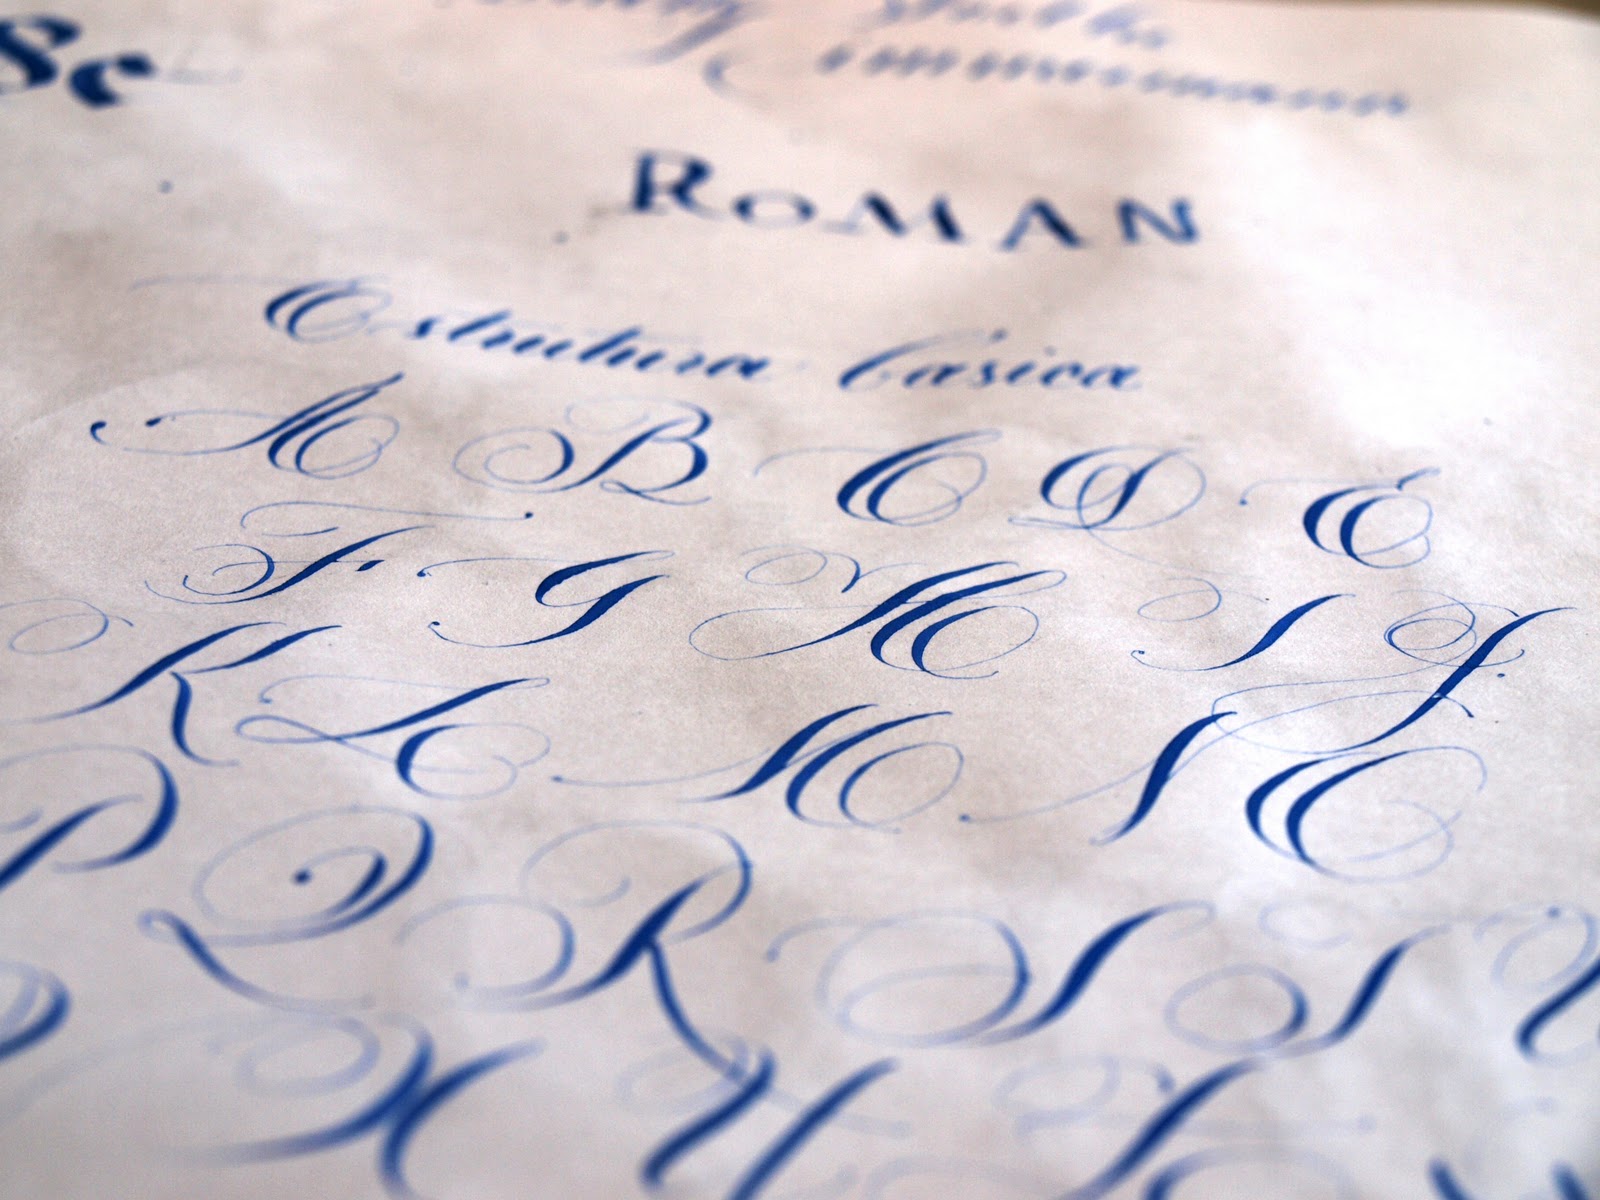 Sc
RoMAN
Estrutura básica
A B C D E
F G H I J
K L M N O
P Q R S T U
X Y Z